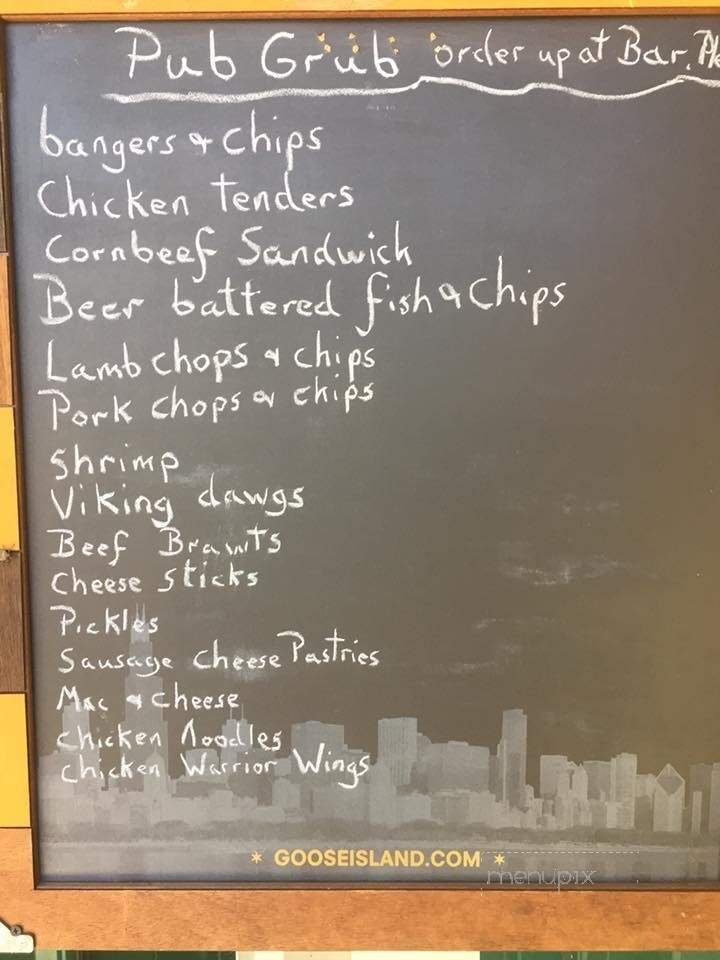 Pub Grub order up at Bar.
bangers & Chips
Chicken tenders
Cornbeef Sandwich
Beer battered fish & Chips
Lamb chops & chips
Pork chops & chips
shrimp
Viking dawgs
Beef Brawts
Cheese sticks
Pickles
Sausage cheese Pastries
Mac & cheese
chicken Noodles
chicken Warrior Wings
* GOOSEISLAND.COM *
menupix